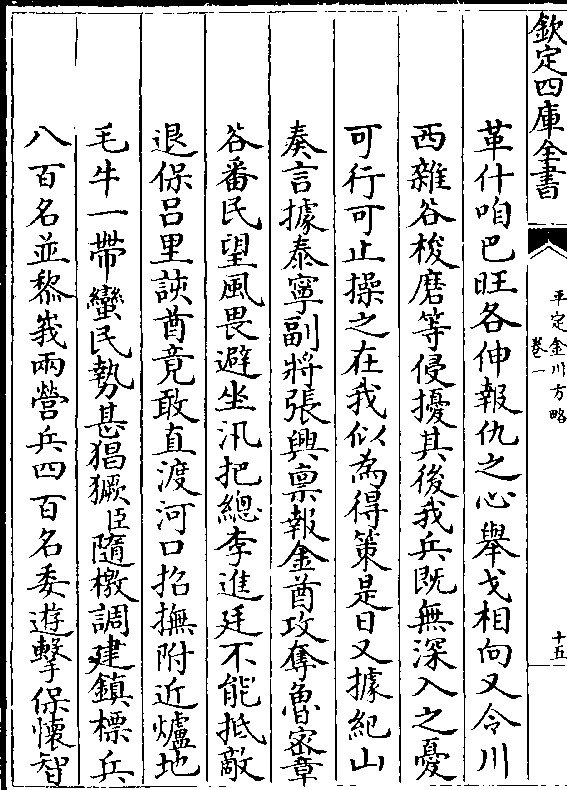 欽定四庫全書
平定金川方略
卷一
十五
革什咱巴旺各伸報仇之心舉戈相向又令川
西雜谷梭磨等侵擾其後我兵既無深入之憂
可行可止操之在我似為得策是日又據紀山
奏言據泰寧副將張興稟報金酋攻奪魯密章
谷番民望風畏避坐汛把總李進廷不能抵敵
退保呂里詼酋竟敢直渡河口招撫附近爐地
毛牛一帶蠻民勢甚猖獗臣隨檄調建鎮標兵
八百名並黎峩兩營兵四百名委遊擊保懷智